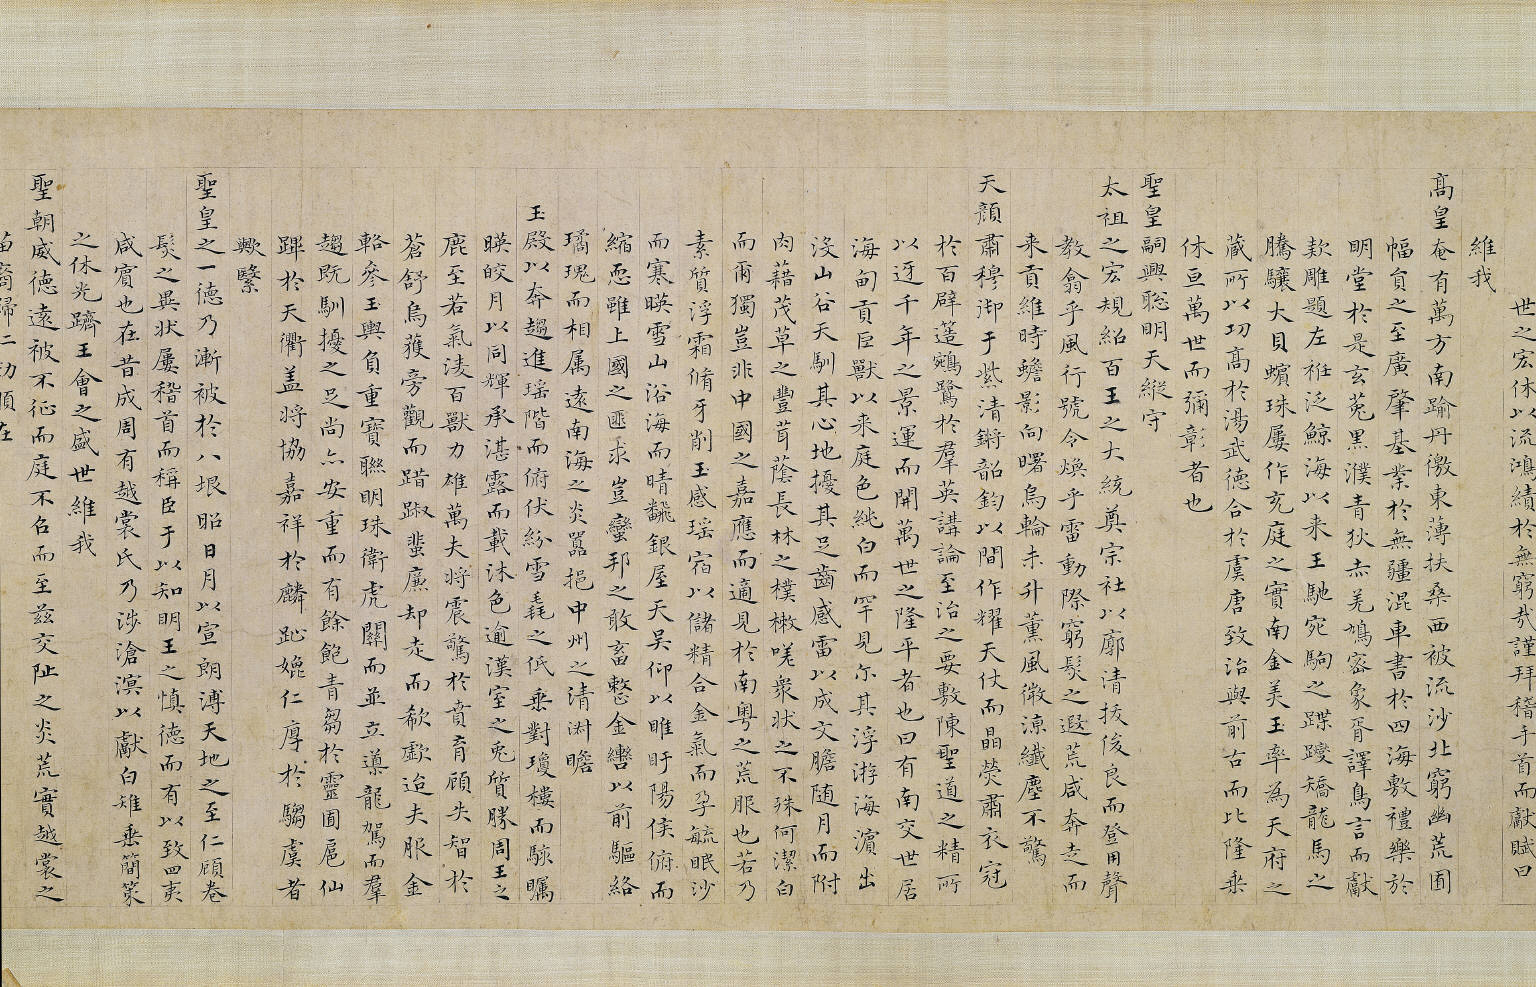 世之宏休以流鴻績於無窮哉謹拜稽手首而獻賦曰
維我
高皇奄有萬方南踰丹徼東薄扶桑西被流沙北窮幽荒圉
幅員之至廣肇基業於無疆混車書於四海敷禮樂於
明堂於是玄菟黑濮青狄赤羌鳩窋象胥譯鳥言而獻
款雕題左袵泛鯨海以来王馳宛駒之蹀躞矯龍馬之
騰驤大貝蠙珠屢作充庭之實南金美玉率為天府之
蔵所以功髙於湯武德合於虞唐致治與前古而比隆乗
休亘萬世而彌彰者也
聖皇嗣興聡明天縱守
太祖之宏規紹百王之大統奠宗社以廓清拔俊良而登用聲
教翕乎風行號令煥乎雷動際窮髮之遐荒咸奔走而
来貢維時蟾影向曙烏輪未升薫風微涼纖塵不驚
天顔肅穆御于紫清鏘韶鈞以間作耀天仗而晶熒肅衣冠
於百辟簉鵷鷺於羣英講論至治之要敷陳聖道之精所
以迓千年之景運而開萬世之隆平者也曰有南交世居
海甸貢臣獸以来庭色純白而罕見尓其浮游海濵出
沒山谷天馴其心地擾其足齒感雷以成文膽随月而附
肉藉茂草之豐茸蔭長林之樸樕嗟衆状之不殊何潔白
而爾獨豈非中國之嘉應而適見於南粤之荒服也若乃
素質浮霜脩牙削玉感瑶宿以儲精合金氣而孕毓眠沙
而寒暎雪山浴海而晴飜銀屋天吴仰以睢盱陽侯俯而
縮恧雖上國之匪求豈蠻邦之敢畜整金轡以前驅絡
璚瑰而相属逺南海之炎嚻挹中州之清淑瞻
玉殿以奔趨進瑶階而俯伏紛雪毳之低乗對瓊樓而騄矚
暎皎月以同輝承湛露而載沐色逾漢室之兎質勝周王之
鹿至若氣淩百獸力雄萬夫将震驚於賁育顧失智於
蒼舒烏蒦旁觀而踖踧蜚廉却走而欷歔迨夫服金
輅參玉輿負重寶聨明珠衛虎關而並立導龍駕而羣
趨既馴擾之足尚亦安重而有餘飽青芻於靈囿扈仙
蹕於天衢盖将協嘉祥於麟趾媲仁厚於騶虞者
歟繄
聖皇之一德乃漸被於八垠昭日月以宣朗溥天地之至仁顧卷
髮之異状屢稽首而稱臣于以知明王之慎德而有以致四夷
咸賓也在昔成周有越裳氏乃涉滄溟以獻白雉垂簡策
之休光躋王會之盛世維我
聖朝威德逺被不征而庭不召而至兹交阯之炎荒實越裳之
苗裔歸仁効順在